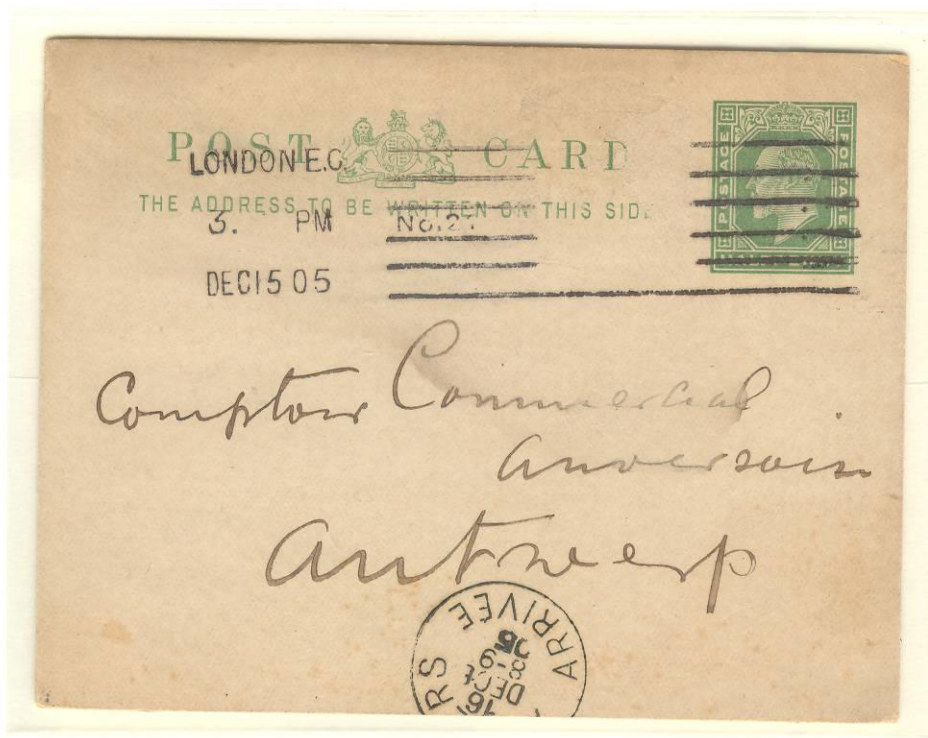 POST CARD
THE ADDRESS TO BE WRITTEN ON THIS SIDE
LONDON E.C.
3. PM
DEC 15 05
POSTAGE POSTAGE
Comptoir Commercial
Anversois
Antwerp
ARRIVEE
DEC
05
RS